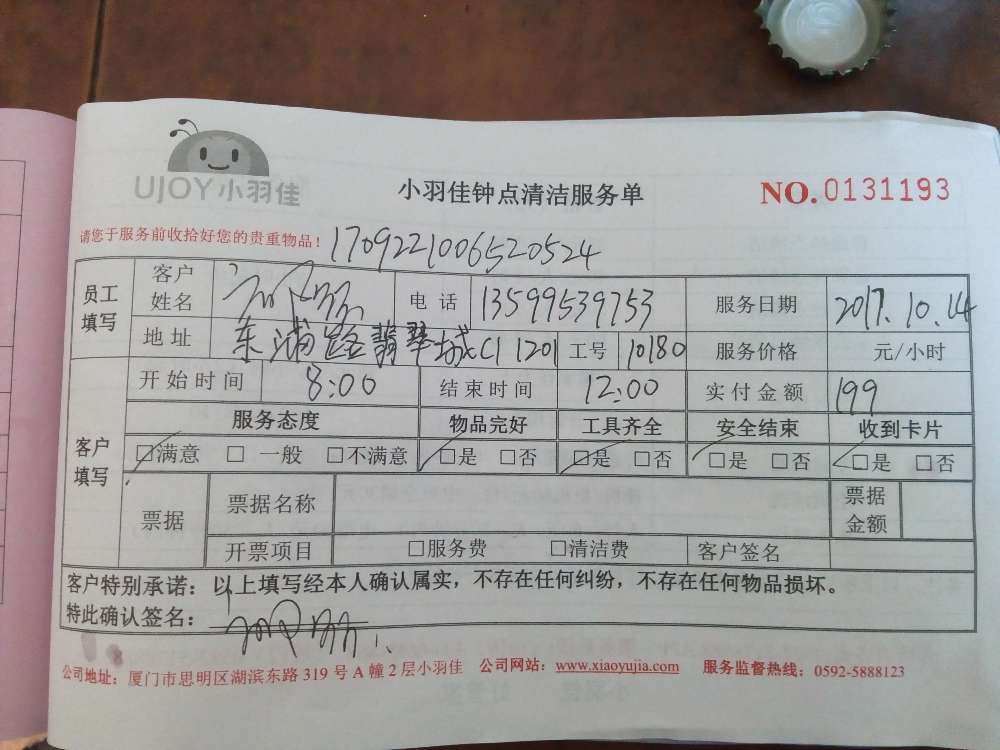 UJOY小羽佳
小羽佳钟点清洁服务单
NO.0131193
请您于服务前收拾好您的贵重物品！
1709221006520524
员工填写 客户姓名 电话 13599539753 服务日期 2017.10.14
地址 东浦路翡翠城C1 1201 工号 10180 服务价格 元/小时
开始时间 8:00 结束时间 12:00 实付金额 199
客户填写 服务态度 物品完好 工具齐全 安全结束 收到卡片
□满意 □一般 □不满意 □是 □否 □是 □否 □是 □否 □是 □否
票据 票据名称 票据金额
开票项目 □服务费 □清洁费 客户签名
客户特别承诺：以上填写经本人确认属实，不存在任何纠纷，不存在任何物品损坏。
特此确认签名：
公司地址：厦门市思明区湖滨东路 319 号 A 幢 2 层小羽佳 公司网站：www.xiaoyujia.com 服务监督热线：0592-5888123